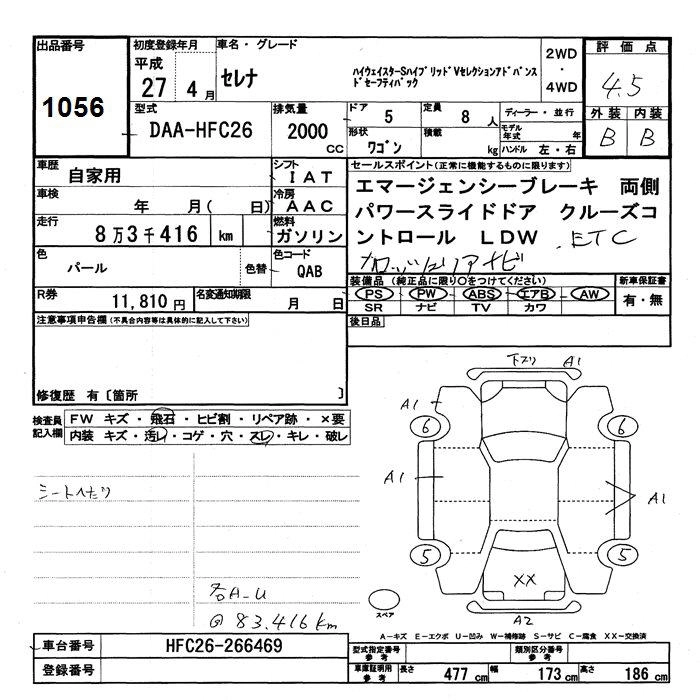 出品番号
1056
初度登録年月
平成
27 4 月
車名・グレード
セレナ
ハイウェイスターSハイブリッドVセレクションアドバンス
ドセーフティパック
2WD
・
4WD
評価点
4.5
外装 内装
B B
型式
DAA-HFC26
排気量
2000 CC
ドア 5
定員 8 人
ディーラー・並行
形状 ワゴン
積載 kg
モデル年式 年
ハンドル 左・右
車歴 自家用
シフト IAT
車検 年 月( 日)
冷房 AAC
走行 8万3千416 km
燃料 ガソリン
色 パール
色替
色コード QAB
R券 11,810 円
名変通知期限 月 日
セールスポイント(正常に機能するものに限ります)
エマージェンシーブレーキ 両側
パワースライドドア クルーズコ
ントロール LDW .ETC
装備品 (純正品に限り〇をつけてください)
PS PW ABS エアB AW
SR ナビ TV カワ
新車保証書
有・無
後日品
注意事項申告欄(不具合内容等は具体的に記入して下さい)
修復歴 有〔箇所 〕
検査員記入欄
FW キズ・飛石・ヒビ割・リペア跡・×要
内装 キズ・汚レ・コゲ・穴・スレ・キレ・破レ
シートヘタリ
各A-U
@83.416km
下ズリ A1
A1
6 6
A1
A1
5 5
XX
スペア
A2
A-キズ E-エクボ U-凹み W-補修跡 S-サビ C-腐食 XX-交換済
車台番号 HFC26-266469
登録番号
型式指定番号 参考
類別区分番号 参考
車庫証明用 参考
長さ 477 cm 幅 173 cm 高さ 186 cm